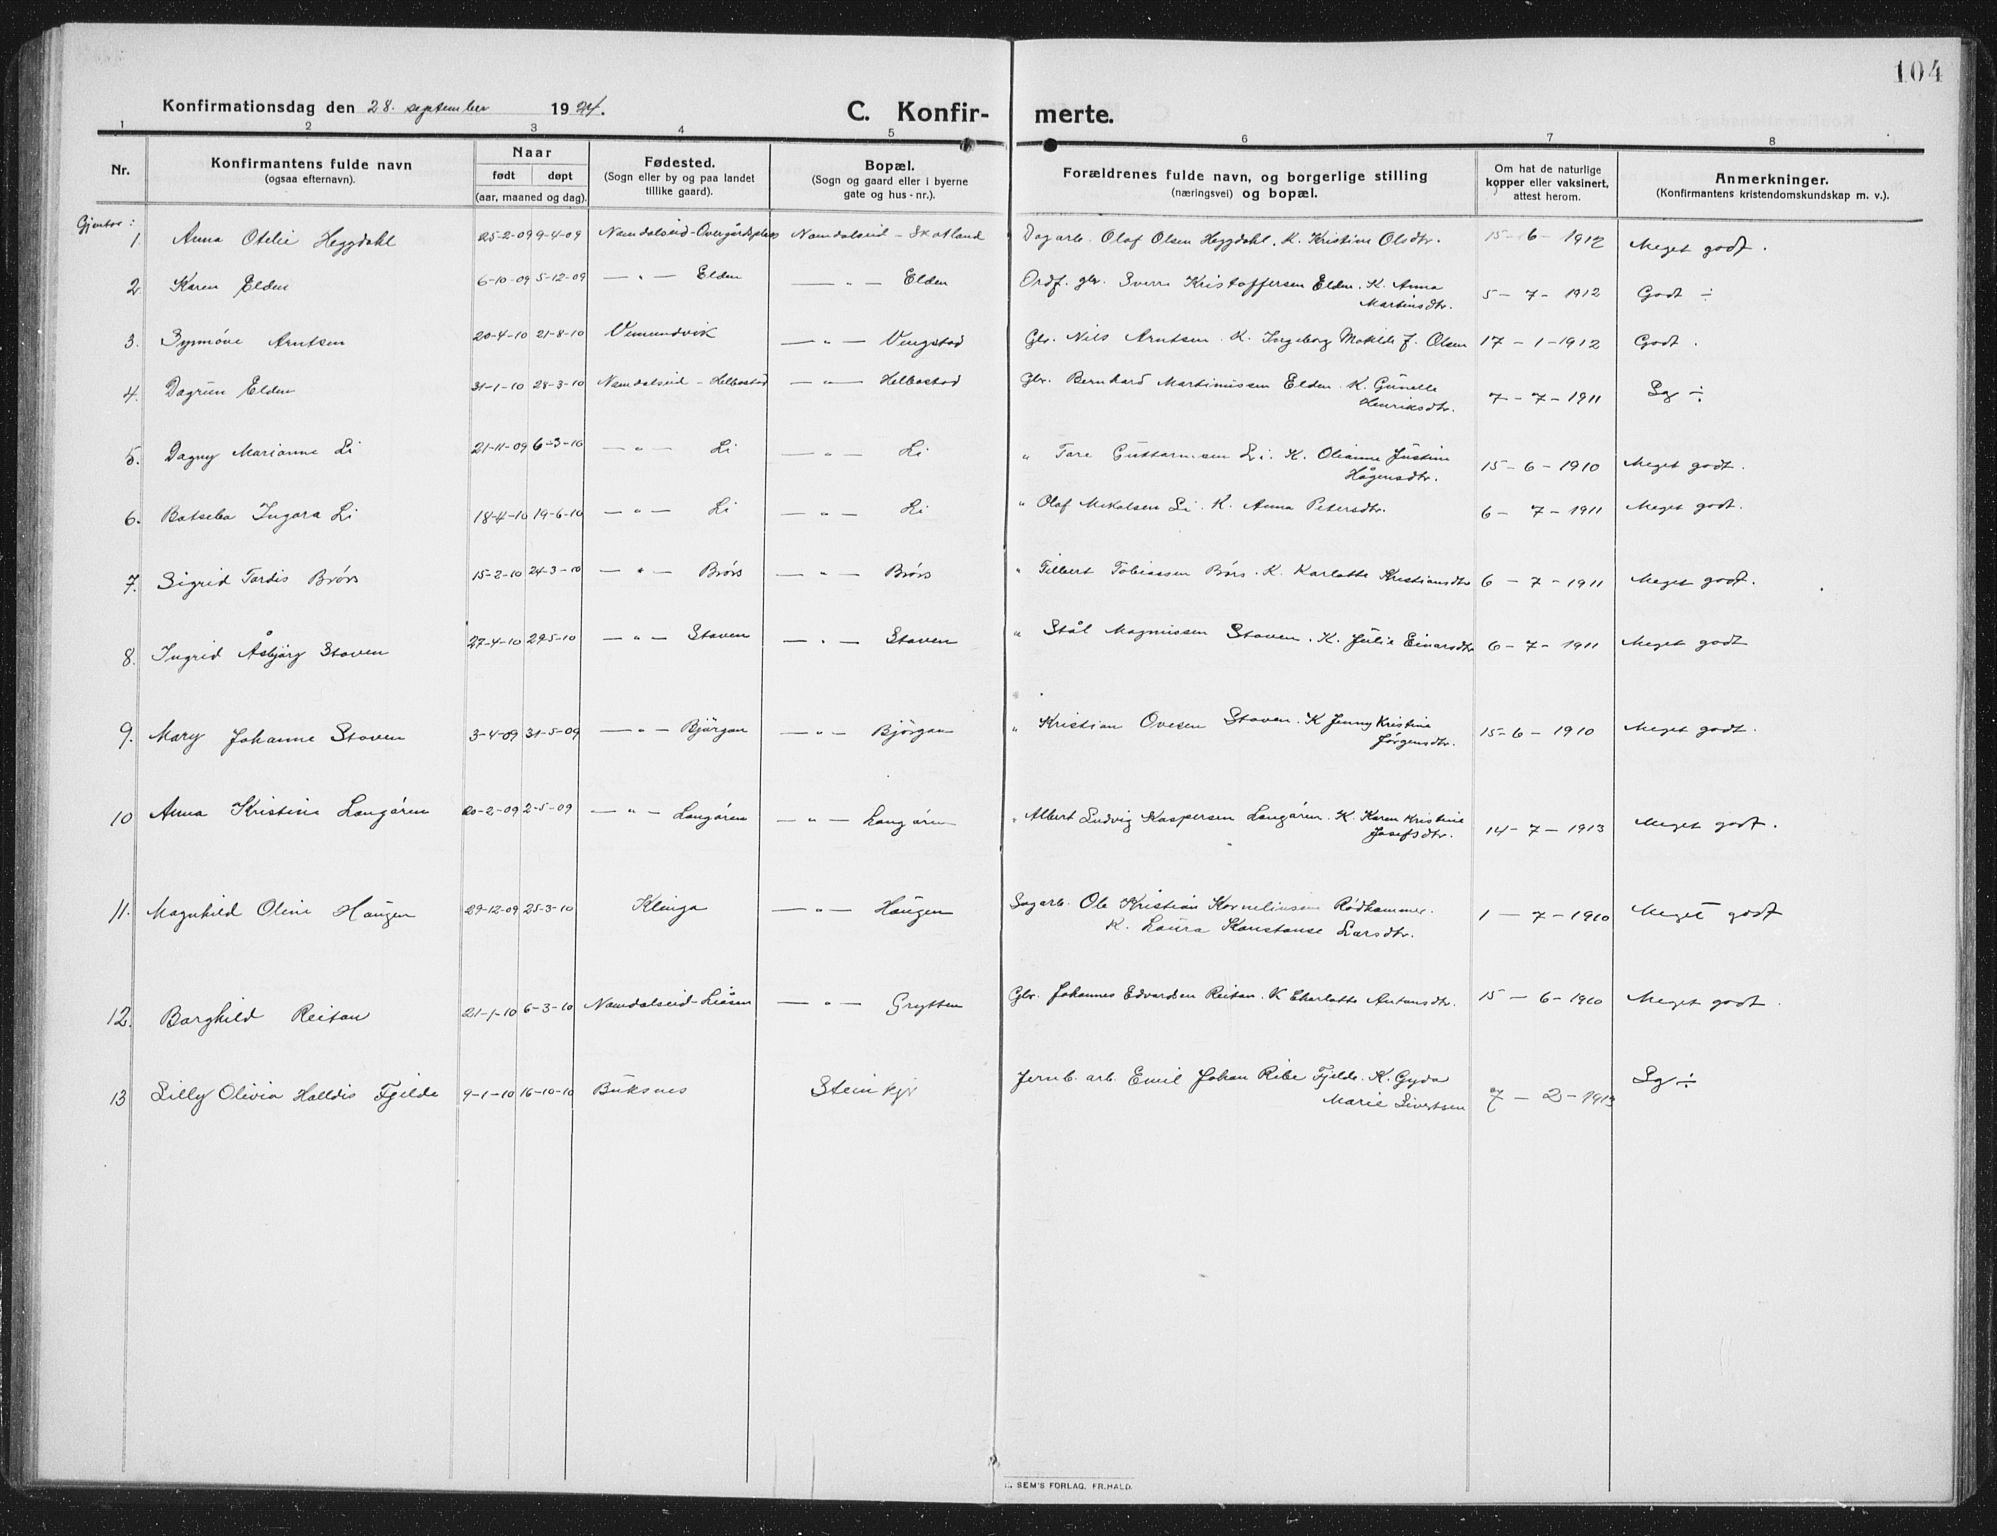 104
Konfirmationsdag den 28. september 1924.
C. Konfir- merte.
1 2 3 4 5 6 7 8
Nr. Konfirmantens fulde navn (ogsaa efternavn). Naar født døpt (aar, maaned og dag). Fødested. (Sogn eller by og paa landet tillike gaard). Bopæl. (Sogn og gaard eller i byerne gate og hus-nr.). Forældrenes fulde navn, og borgerlige stilling (næringsvei) og bopæl. Om hat de naturlige kopper eller vaksinert, attest herom. Anmerkninger. (Konfirmantens kristendomskundskap m. v.).
Gjentor:
1. Anna Otelie Heggdahl 25-2-09 9-4-09 Namdalseid-Overgårdsplass Namdalseid - Skatland Dagarb. Olaf Olsen Heggdahl. K. Kristine Olsdtr. 15-6-1912 Meget godt.
2 Karen Elden 6-10-09 5-12-09 — " — Elden — " — Elden Ordf. gbr. Sverre Kristoffersen Elden. K. Anna Martinsdtr. 5-7-1912 Godt ÷
3. Synnöve Arntsen 20-4-10 21-8-10 Vemundvik — " — Vengstad Gbr. Nils Arntsen. K. Ingeborg Matilde f. Olsen 17-1-1912 Godt.
4. Dagrun Elden 31-1-10 28-3-10 Namdalseid - Helbostad — " — Helbostad Gbr. Bernhard Martinussen Elden. K. Gunelle Henriksdtr. 7-7-1911 Sg ÷
5. Dagny Marianne Li 21-11-09 6-3-10 — " — Li — " — Li " Tore Guttormsen Li. K. Olianna Justine Hågensdtr. 15-6-1910 Meget godt.
6. Batseba Ingara Li 18-4-10 19-6-10 — " — Li — " — Li " Olaf Mikalsen Li. K. Anna Petersdtr. 6-7-1911 Meget godt.
7. Sigrid Tordis Brörs 15-2-10 24-3-10 — " — Brörs — " — Brörs " Tilbert Tobiassen Börs. K. Karlotte Kristiansdtr 6-7-1911 Meget godt.
8. Ingrid Åsbjörg Staven 27-4-10 29-5-10 — " — Staven — " — Staven " Stål Magnussen Staven. K. Julie Einarsdtr 6-7-1911 Meget godt
9. Mary Johanne Staven 3-4-09 31-5-09 — " — Björgan — " — Björgan " Kristian Ovesen Staven. K Jenny Kristine Jörgensdtr. 15-6-1910 Meget godt.
10 Anna Kristine Langören 20-2-09 2-5-09 — " — Langören — " — Langören " Albert Ludvig Kaspersen Langören. K. Karen Kristine Josefsdtr. 14-7-1913 Meget godt.
11. Magnhild Oline Haugen 29-12-09 25-3-10 Klinga — " — Haugen Sagarb. Ole Kristian Korneliussen Rödhammer. K. Laura Konstanse Larsdtr. 1-7-1910 Meget godt
12. Borghild Reitan 21-1-10 6-3-10 Namdalseid-Liåsen — " — Grytten Gbr. Johannes Edvardsen Reitan. K Charlotte Antonsdtr. 15-6-1910 Meget godt.
13 Lilly Olivia Halldis Fjelde 9-1-10 16-10-10 Buksnes Steinkjer Jernb. arb. Emil Johan Ribe Fjelde. K. Gyda Marie Sivertsen 7-2-1913 Sg ÷
SEM'S FORLAG. FR.HALD.